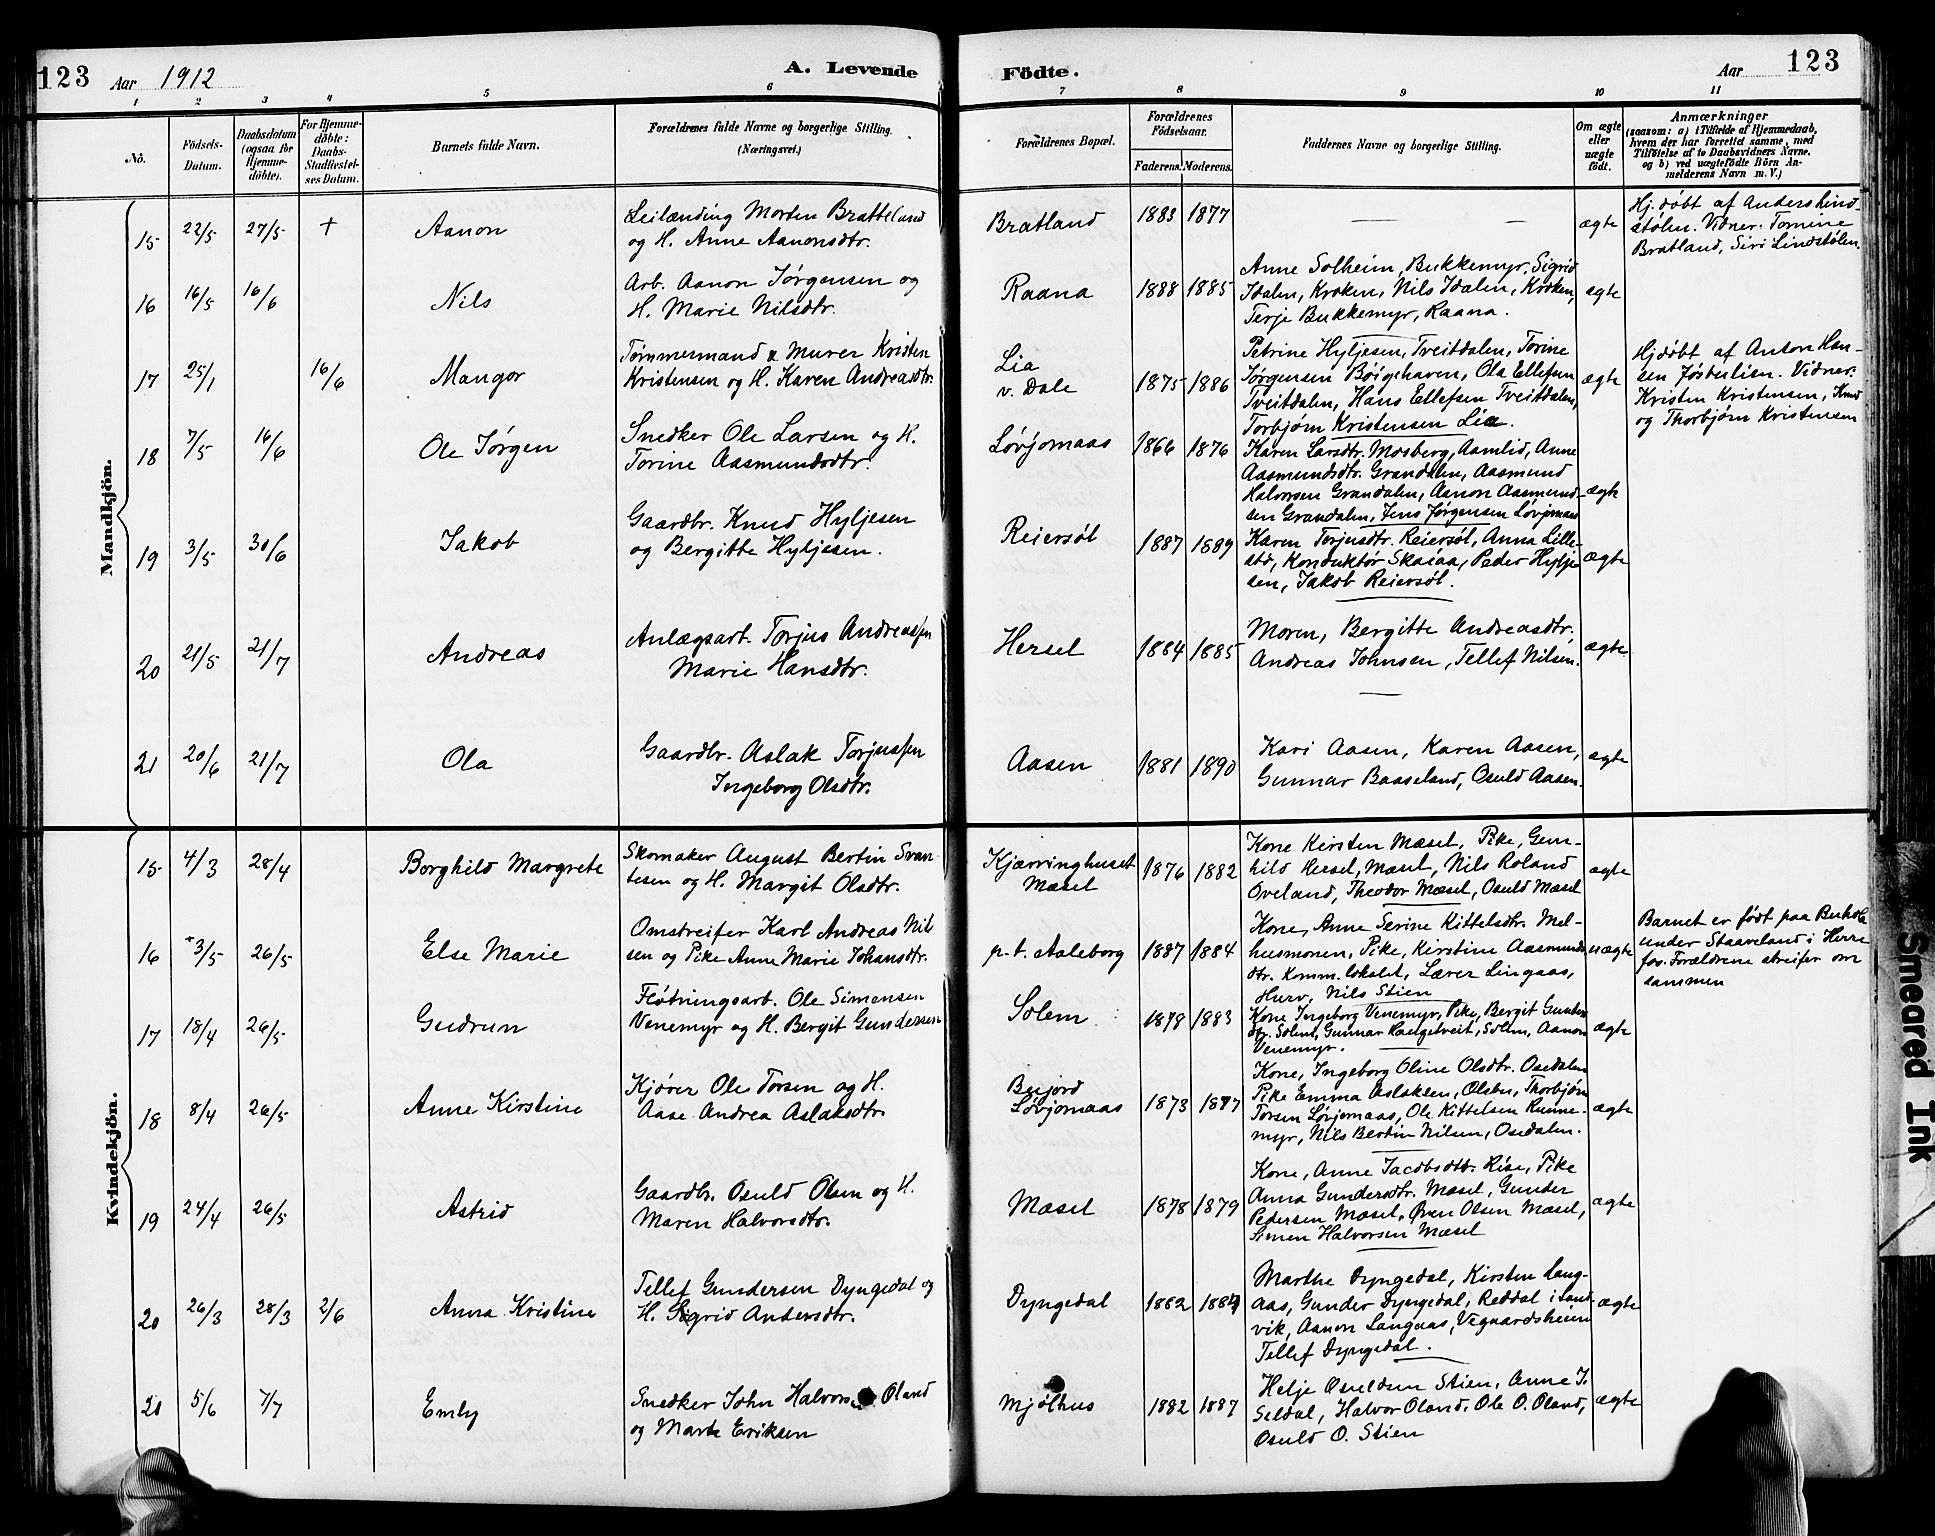 123 Aar 1912 A. Levende Födte. Aar 123
1 2 3 4 5 6 7 8 9 10 11
Nö.
Födsels-Datum.
Daabsdatum (ogsaa for Hjemme-döbte).
For Hjemme-döbte: Daabs-Stadfæstel-ses Datum.
Barnets fulde Navn.
Forældrenes fulde Navne og borgerlige Stilling. (Næringsvei.)
Forældrenes Bopæl.
Forældrenes Födselsaar.
Faderens. Moderens.
Faddernes Navne og borgerlige Stilling.
Om ægte eller uægte födt.
Anmærkninger
(saasom: a) i Tilfælde af Hjemmedaab, hvem der har forrettet samme, med Tilföielse af to Daabsvidners Navne. og b) ved uægtefödte Börn Anmelderens Navn m. V.)
Mandkjön.
15 22/5 27/5 + Aanon
Leilænding Morten Brattland
og H. Anne Aanonsdtr.
Bratland 1883 1877 — — ægte
Hj. døbt af Anders Lind-
stølen. Vidner: Tomine
Bratland, Siri Lindstølen.
16 16/5 16/6 Nils
Arb. Aanon Jørgensen og
H. Marie Nilsdtr.
Raana 1888 1885
Anne Solheim, Bukkemyr, Sigrid
Idalen, Kroken, Nils Idalen, Kroken,
Terje Bukkemyr, Raana.
ægte
17 25/1 16/6 Mangor
Tømmermand & Murer Kristen
Kristensen og H. Karen Andreasdtr.
Lia
v. Dale
1875 1886
Petrine Hyljesen, Tveitdalen, Torine
Jørgensen Bøigehaven, Ola Ellefsen
Tveitdalen, Hans Ellefsen Tveitdalen,
Torbjørn Kristensen Lia.
ægte
Hjdøbt af Anton Han-
sen Jøstulien. Vidner:
Kristen Kristensen, Knud
og Thorbjørn Kristensen
18 7/5 16/6 Ole Jørgen
Snedker Ole Larsen og H.
Torine Aasmundsdtr.
Løvjomaas 1866 1876
Karen Larsdtr. Mosberg, Aamlid, Anne
Aasmundsdtr. Grandalen, Aasmund
Halvorsen Grandalen, Aanon Aasmund-
sen Grandalen, Jens Jørgensen Løvjomaas
ægte
19 3/5 30/6 Jakob
Gaardbr. Knud Hyljesen
og Bergitte Hyljesen.
Reiersøl 1887 1889
Karen Terjusdtr. Reiersøl, Anna Lille-
stø, Konduktør Skaiaa, Peder Hylje-
sen, Jakob Reiersøl.
ægte
20 21/5 21/7 Andreas
Anlægsarb. Torjus Andreassen
Marie Hansdtr.
Hersel 1884 1885
Moren, Bergitte Andreasdtr.
Andreas Johnsen, Tellef Nilsen.
ægte
21 20/6 21/7 Ola
Gaardbr. Aslak Torjussen
Ingeborg Olsdtr.
Aasen 1881 1890
Kari Aasen, Karen Aasen,
Gunnar Baaseland, Osuld Aasen.
ægte
Kvindekjön.
15 4/3 28/4 Borghild Margrete
Skomaker August Bertin Svan-
tesen og H. Margit Olsdtr.
Kjærringhuset
Mæsel
1876 1882
Kone Kirsten Mæsel, Pike, Gun-
hild Hersel, Mæsel, Nils Roland
Oveland, Theodor Mæsel, Osuld Mæsel
ægte
16 3/5 26/5 Else Marie
Omstreifer Karl Andreas Nil-
sen og Pike Anne Marie Johansdtr.
p. t. Aaleborg 1887 1884
Kone, Anne Serine Kittelsdtr. Mel-
husmonen, Pike, Kirstine Aasmunds-
dtr. Komm. lokalet, Lærer Lingaas,
Hurv, Nils Stien
uægte
Barnet er født paa
under Staaveland i Herre
fos. Forældrene streifer om
sammen
17 18/4 26/5 Gudrun
Fløtningsarb. Ole Simonsen
Venemyr og H. Bergit Gundersen
Solem 1878 1883
Kone Ingeborg Venemyr, Pike, Bergit Gunders
dtr. Solem, Gunnar Haugetveit, Solem, Aanon
Venemyr.
ægte
18 8/4 26/5 Anne Kirstine
Kjører Ole Torsen og H.
Aase Andrea Aslaksdtr.
Beijord
Løvjomaas
1873 1877
Kone, Ingeborg Oline Olsdtr. Osedalen
Pike Emma Aslaksen, Olsbu, Thorbjørn
Torsen Løvjomaas, Ole Kittelsen Runne-
myr, Nils Bertin Nilsen, Osedalen.
ægte
19 24/4 26/5 Astrid
Gaardbr. Osuld Olsen og H.
Maren Halvorsdtr.
Mæsel 1878 1879
Kone, Anne Jacobsdtr. Rise, Pike
Anna Gundersdtr. Mæsel, Gunder
Pedersen Mæsel, Øven Olsen Mæsel,
Simen Halvorsen Mæsel
ægte
20 26/3 28/3 2/6 Anna Kristine
Tellef Gundersen Dyngedal og
H. Sigrid Andersdtr.
Dyngedal 1882 1884
Marthe Dyngedal, Kirsten Lang-
aas, Gunder Dyngedal, Reddal i Land-
vik, Aanon Langaas, Vegaardsheien
Tellef Dyngedal.
ægte
21 5/6 7/7 Emly
Snedker John Halvorsen Øland
og Marte Eriksen
Mjølhus 1882 1887
Helje Osuldsen Stien, Anne J.
Seldal, Halvor Øland, Ole O. Øland,
Osuld O. Stien
ægte
Smeared Ink